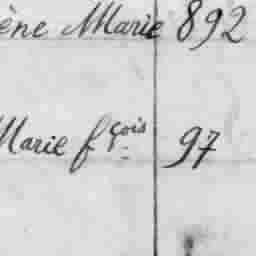 ène Marie 892
Marie fçois 97